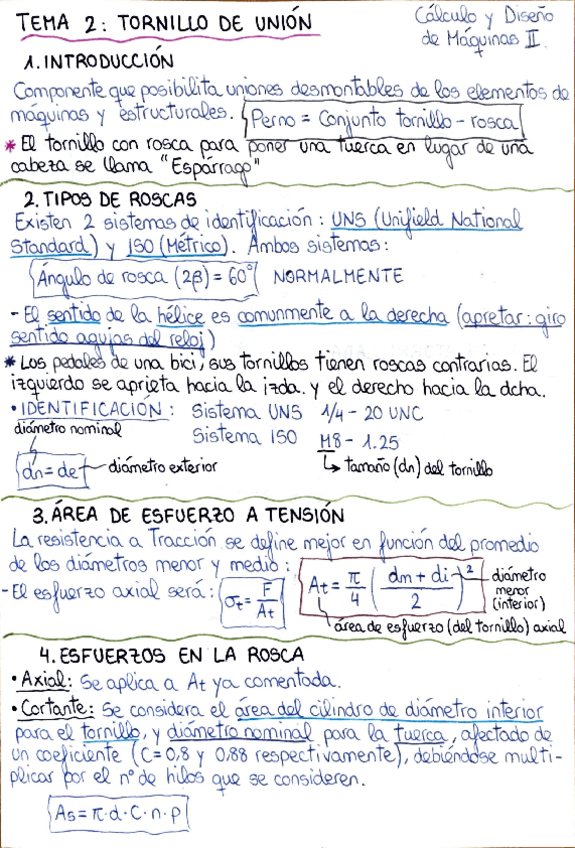 TEMA 2: TORNILLO DE UNIÓN
Cálculo y Diseño
de Máquinas II.
1. INTRODUCCIÓN
Componente que posibilita uniones desmontables de los elementos de
máquinas y estructurales. Perno = Conjunto tornillo - rosca
* El tornillo con rosca para poner una tuerca en lugar de una
cabeza se llama "Espárrago"
2. TIPOS DE ROSCAS
Existen 2 sistemas de identificación: UNS (Unifield National
Standard) y ISO (Métrico). Ambos sistemas:
Ángulo de rosca (2β) = 60° NORMALMENTE
- El sentido de la hélice es comunmente a la derecha (apretar: giro
sentido agujas del reloj)
* Los pedales de una bici, sus tornillos tienen roscas contrarias. El
izquierdo se aprieta hacia la izda. y el derecho hacia la dcha.
• IDENTIFICACIÓN: Sistema UNS 1/4 - 20 UNC
diámetro nominal
Sistema ISO M8 - 1.25
dn = de diámetro exterior
tamaño (dn) del tornillo
3. ÁREA DE ESFUERZO A TENSIÓN
La resistencia a Tracción se define mejor en función del promedio
de los diámetros menor y medio:
At = π/4 (dm + di / 2)²
diámetro
menor
(interior)
- El esfuerzo axial será: σt = F/At
área de esfuerzo (del tornillo) axial
4. ESFUERZOS EN LA ROSCA
• Axial: Se aplica a At ya comentada.
• Cortante: Se considera el área del cilindro de diámetro interior
para el tornillo, y diámetro nominal para la tuerca, afectado de
un coeficiente (C = 0,8 y 0,88 respectivamente), debiéndose multi-
plicar por el nº de hilos que se consideren.
As = π·d·C·n·p